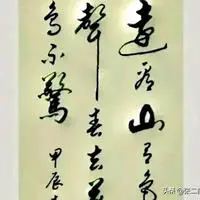 遠看山有色
聲春去花
鳥不驚
甲辰
头条 @张二